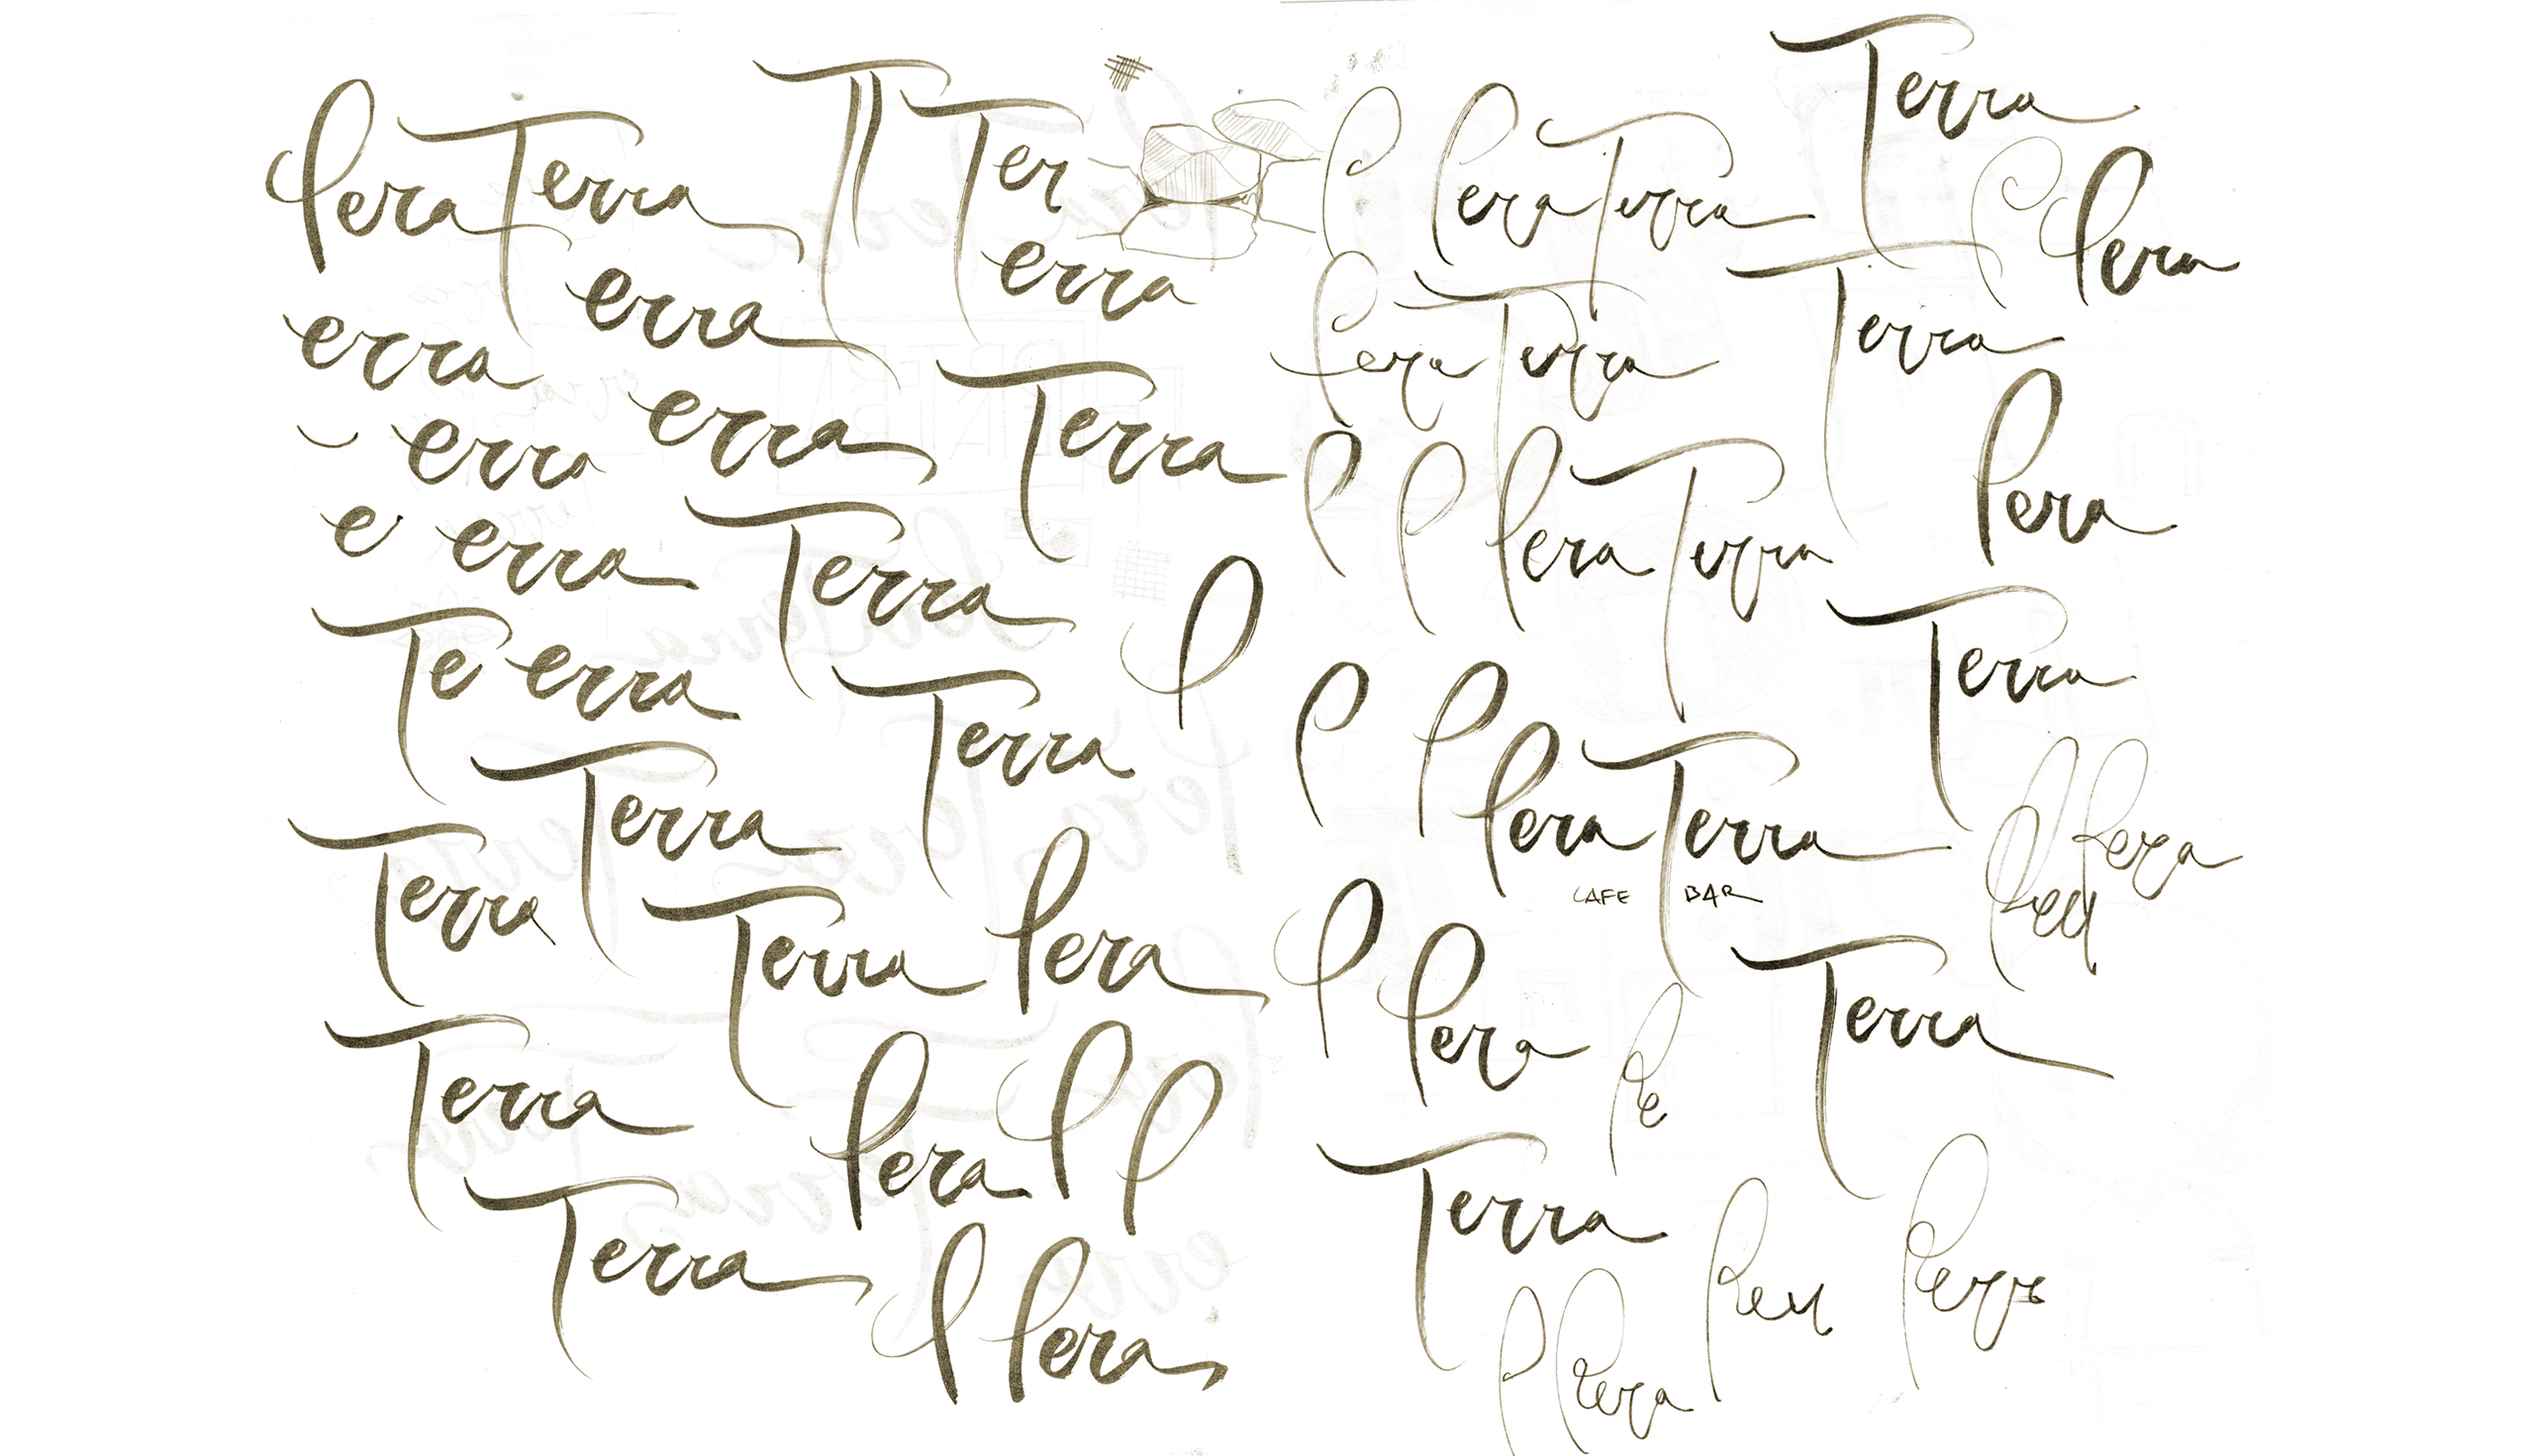 Pera Terra
T Ter
erra
erra
erra
erra
erra
Terra
e erra
Terra
Te erra
P
Terra
Terra
Terra
Terra Pera
Terra
Pera P P
Terra
P Pera
Terra
P Pera Terra
P Pera
Pera Terra
Terra
P P Pera Terra
Pera
Terra
P P Pera Terra
CAFE BAR
Pera
P Pera
Terra
Pe
Terra
P Pera